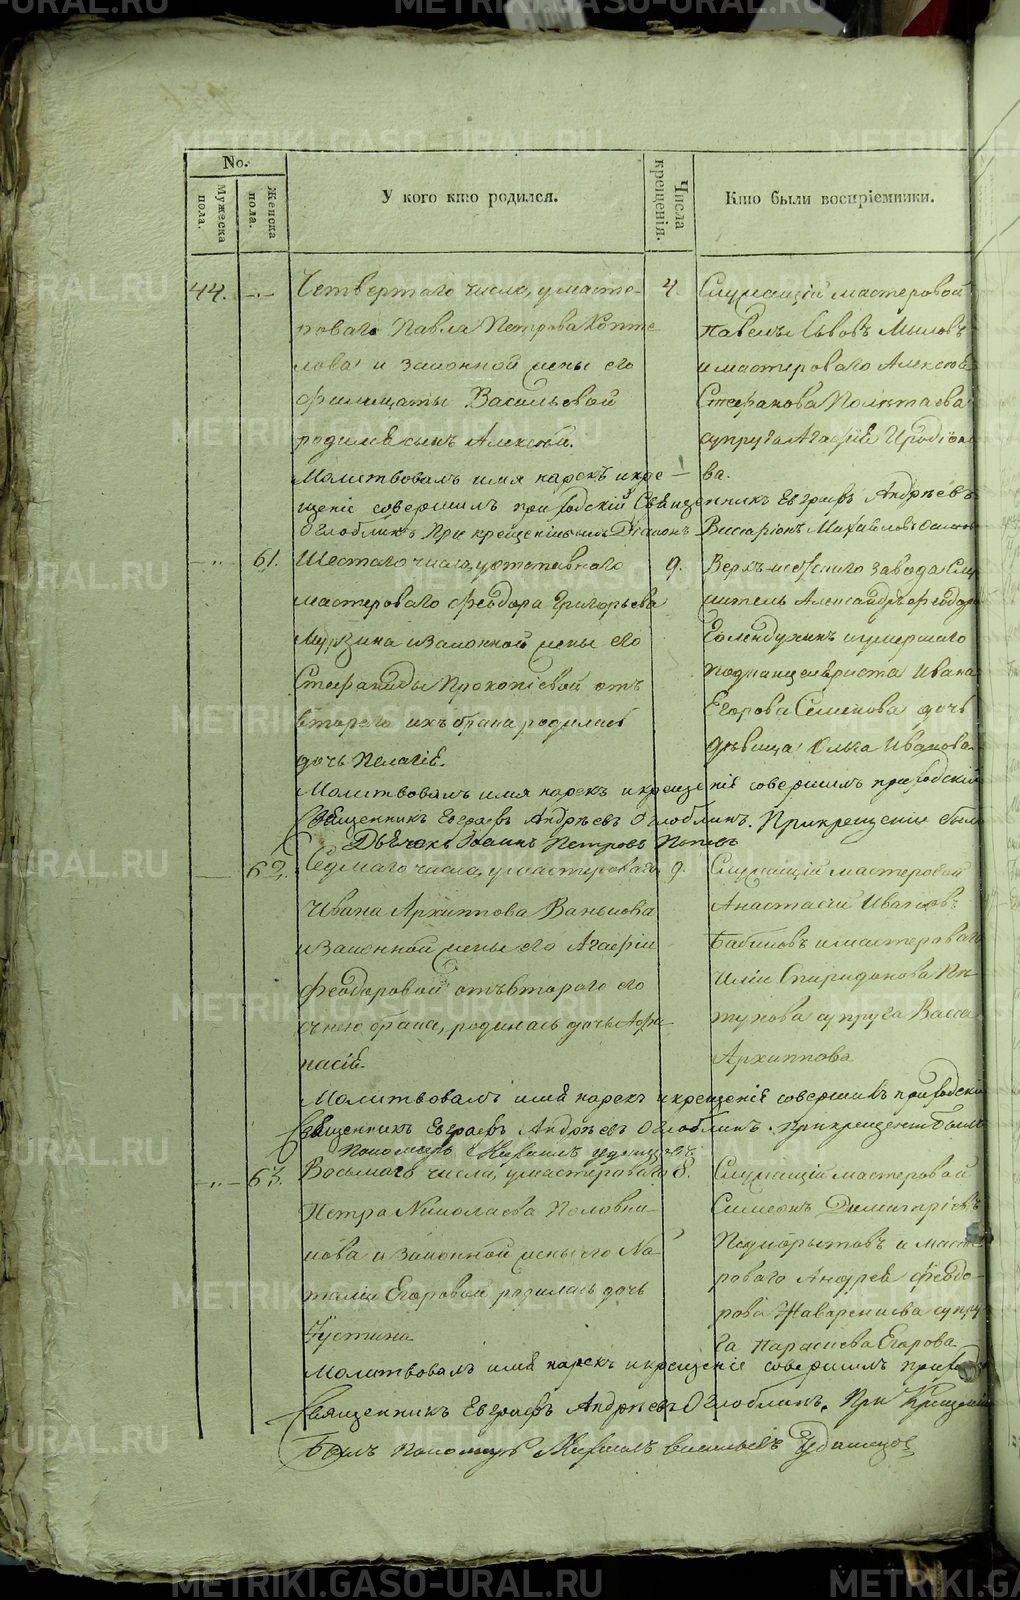 No.
Мужеска пола.
Женска пола.
У кого кто родился.
Числа крещенія.
Кто были воспріемники.
44. — Четвертаго числа, у масте-
роваго Павла Петрова Копте
лова и законной жены его
Филицаты Васильевой
родился сынъ Алексѣй.
4. Служащій мастеровой
Павелъ Львовъ
и мастероваго Алексѣя
Стефанова Полѣтаева
супруга Агафія Иродіоно
ва.
Молитвовалъ имя нарекъ и кре-
щеніе совершилъ приходскій Священникъ Евграфъ Андрѣевъ
Оглоблинъ При крещеніи былъ Діаконъ Виссаріонъ Михайловъ
61. Шестаго числа, у отставнаго
мастероваго Феодора Григорьева
Мурзина и законной жены его
Стефаниды Прокопіевой отъ
втораго ихъ брака родилась
дочь Пелагія.
9. Верхъ-исетскаго завода Слу
житель Александръ Феодоро
и умершаго
подканцеляриста Ивана
Егорова Семенова дочь
дѣвица Ольга Иванова
Молитвовалъ имя нарекъ и крещеніе совершилъ приходскій
Священникъ Евграфъ Андрѣевъ Оглоблинъ. При крещеніи былъ
Дьячокъ Іоаннъ Петровъ Поповъ
62. Седмаго числа, у мастероваго
Ивана Архиппова Ванькова
и законной жены его Агафіи
Феодоровой отъ втораго его
съ нею брака, родилась дочь Афа-
насія.
9. Служащій мастеровой
Анастасій Ивановъ
Бабиновъ и мастероваго
Иліи Спиридонова Пѣ-
тухова супруга Васса
Архиппова
Молитвовалъ имя нарекъ и крещеніе совершилъ приходскій
Священникъ Евграфъ Андрѣевъ Оглоблинъ при крещеніи былъ
Пономарь Михаилъ Удинцовъ
63. Восьмаго числа, у мастероваго
Петра Николаева Половни-
кова и законной жены его На
таліи Егоровой родилась дочь
Іустина
8. Служащій мастеровой
Симеонъ Димитріевъ
Подкорытовъ и масте
роваго Андрея Феодо-
рова супру
га Парасковья Егорова
Молитвовалъ имя нарекъ и крещеніе совершилъ приход
Священникъ Евграфъ Андрѣевъ Оглоблинъ. При Крещеніи
Былъ Пономарь Михаилъ Васильевъ Удинцовъ
METRIKI.GASO-URAL.RU